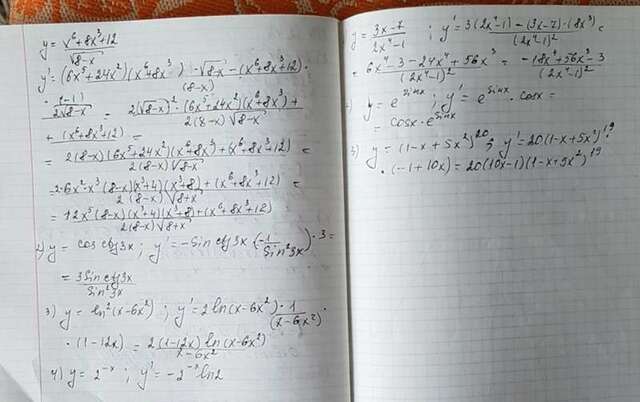 y = (x⁶+8x³+12)/√(8-x)
y' = (6x⁵+24x²)(x⁶+8x³)·√(8-x) - (x⁶+8x³+12)·
(8-x)
· (-1)/(2√(8-x)) = (2(√(8-x))²·(6x⁵+24x²)(x⁶+8x³)+)/(2(8-x)√(8-x))
+(x⁶+8x³+12) =
= (2(8-x)(6x⁵+24x²)(x⁶+8x³)+(x⁶+8x³+12))/(2(8-x)√(8-x)) =
= (2·6x²·x³(8-x)(x³+4)(x³+8)+(x⁶+8x³+12))/(2(8-x)√(8+x)) =
= (12x⁵(8-x)(x³+4)(x³+8)+(x⁶+8x³+12))/(2(8-x)√(8+x))
2) y = cos ctg3x ; y' = -sin ctg3x·(-1/sin²3x)·3 =
= (3sin ctg3x)/(sin²3x)
3) y = ln²(x-6x²) ; y' = 2ln(x-6x²)·1/(x-6x²)·
·(1-12x) = (2(1-12x)ln(x-6x²))/(x-6x²)
4) y = 2⁻ˣ ; y' = -2⁻ˣln2
y = (3x-7)/(2x⁴-1) ; y' = (3(2x⁴-1)-(3x-7)·(8x³))/((2x⁴-1)²)
= (6x⁴-3-24x⁴+56x³)/((2x⁴-1)²) = (-18x⁴+56x³-3)/((2x⁴-1)²)
) y = e^(sinx) ; y' = e^(sinx)·cosx =
= cosx·e^(sinx)
3) y = (1-x+5x²)²⁰ ; y' = 20(1-x+5x²)¹⁹
·(-1+10x) = 20(10x-1)(1-x+5x²)¹⁹